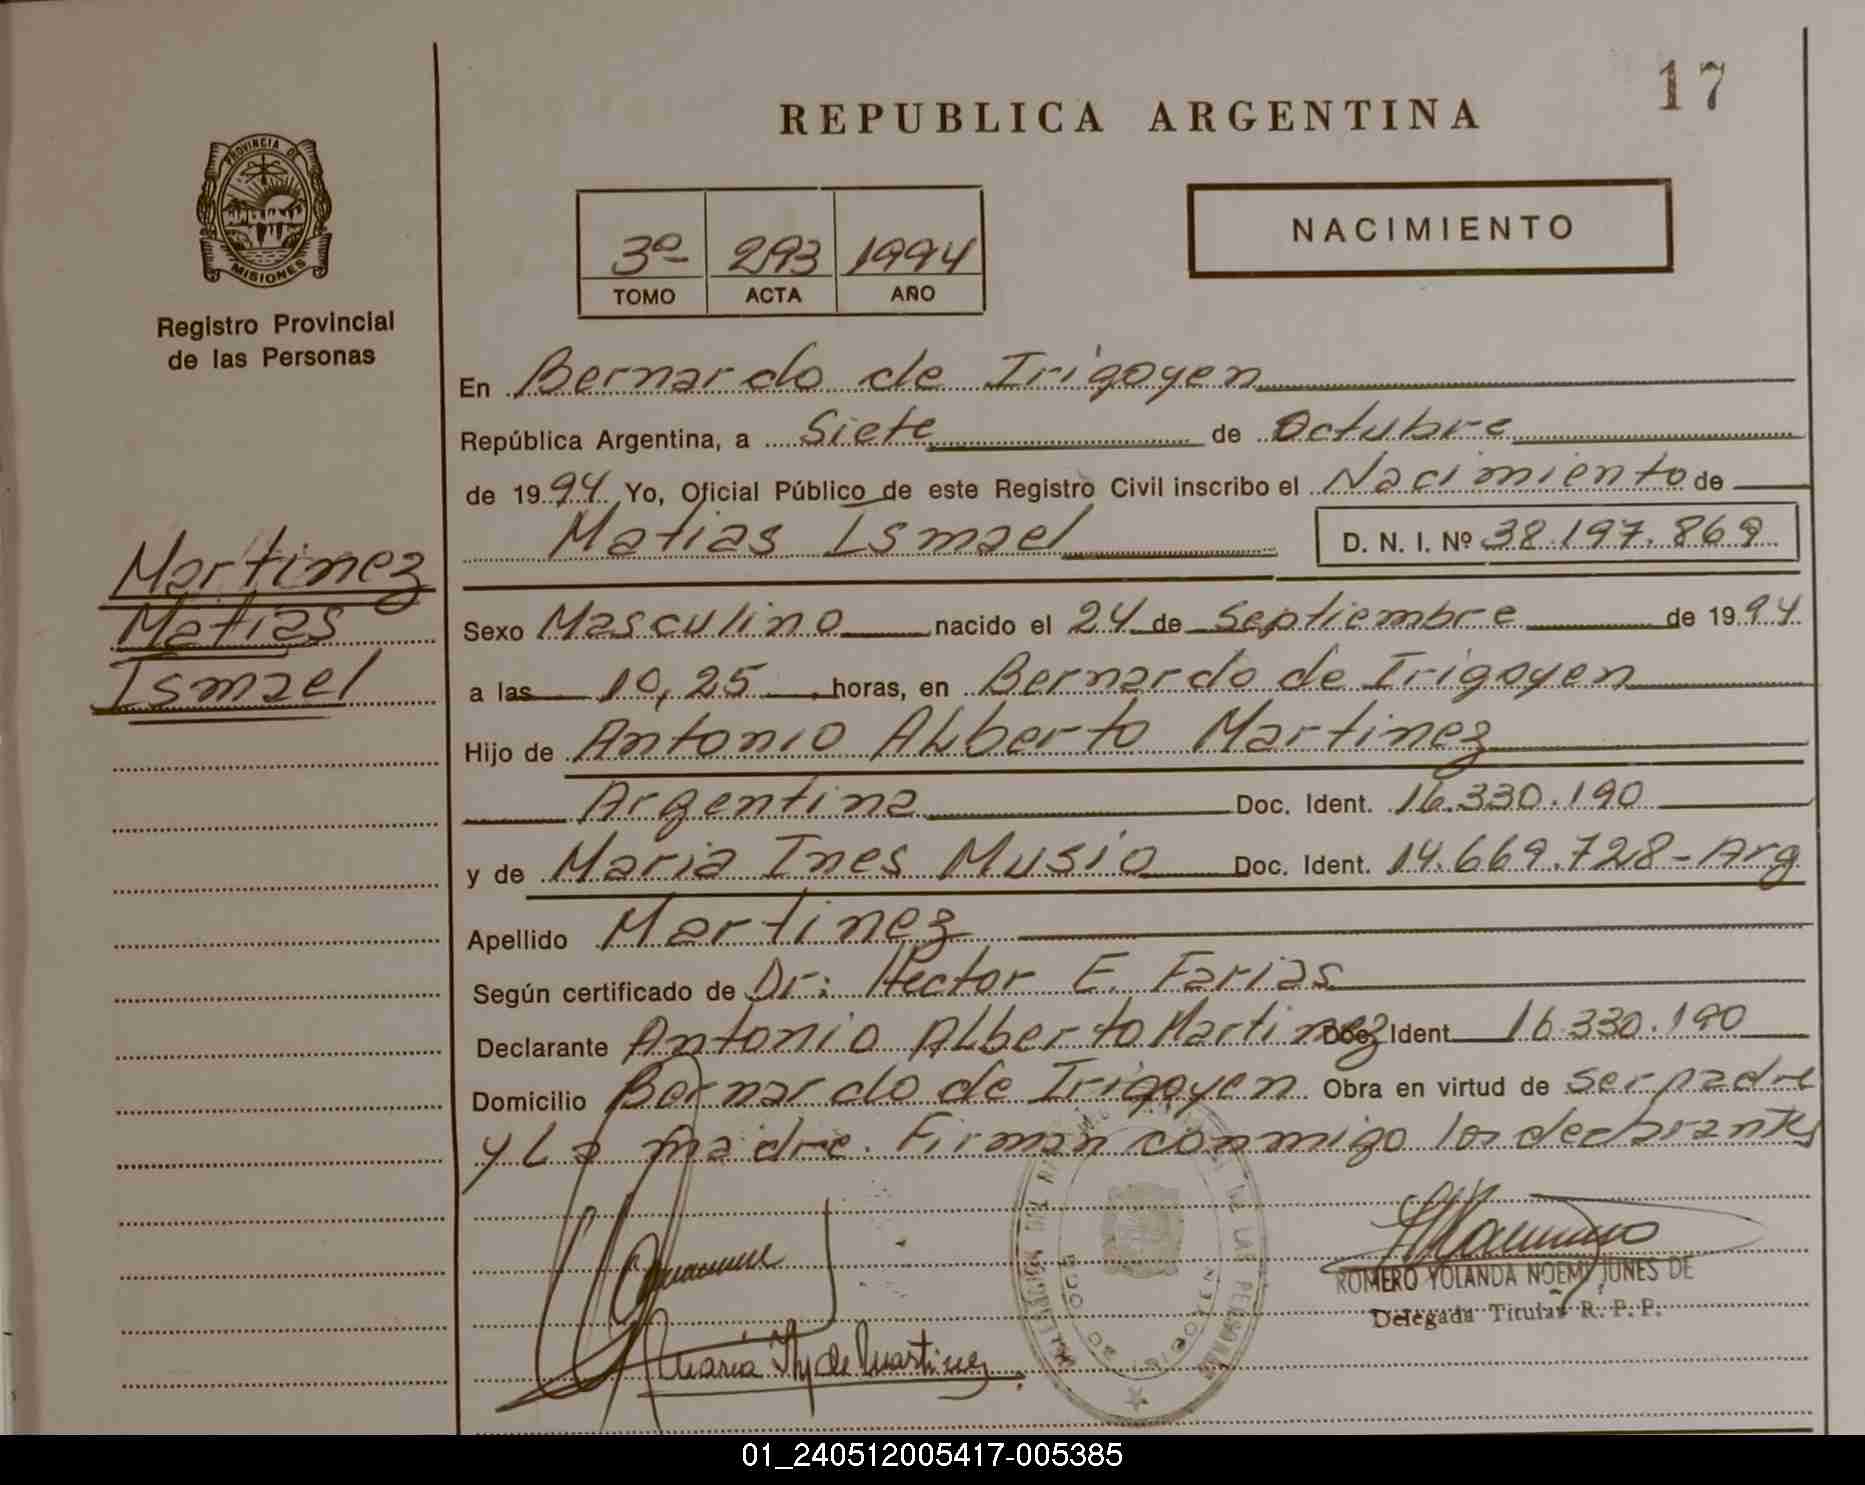 17
REPUBLICA ARGENTINA
PROVINCIA DE
MISIONES
Registro Provincial
de las Personas
3º 293 1994
TOMO ACTA AÑO
NACIMIENTO
En Bernardo de Irigoyen
República Argentina, a Siete de Octubre
de 1994 Yo, Oficial Público de este Registro Civil inscribo el Nacimiento de
Matias Ismael D. N. I. Nº 38.197.869
Martinez
Matias
Ismael
Sexo Masculino nacido el 24 de Septiembre de 1994
a las 10,25 horas, en Bernardo de Irigoyen
Hijo de Antonio ALberto Martinez
Argentina Doc. Ident. 16.330.190
y de Maria Ines Musio Doc. Ident. 14.669.728-Arg
Apellido Martinez
Según certificado de Dr: Hector E. Farias
Declarante Antonio ALberto Martinez Doc. Ident 16.330.190
Domicilio Bernardo de Irigoyen Obra en virtud de ser padre
y La madre. Firman conmigo los declarantes
ROMERO YOLANDA NOEMI JUNES DE
Delegada Titular R. P. P.
María de Martinez
DE LAS PERSONAS
01_240512005417-005385